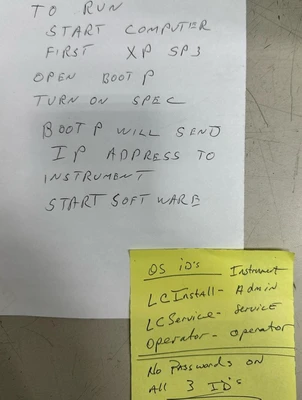 TO RUN
START COMPUTER
FIRST XP SP3
OPEN BOOT P
TURN ON SPEC
BOOT P WILL SEND
IP ADDRESS TO
INSTRUMENT
START SOFTWARE
OS iD's Instrument
LCInstall - Admin
LCService - Service
Operator - operator
No Passwords on
All 3 ID's